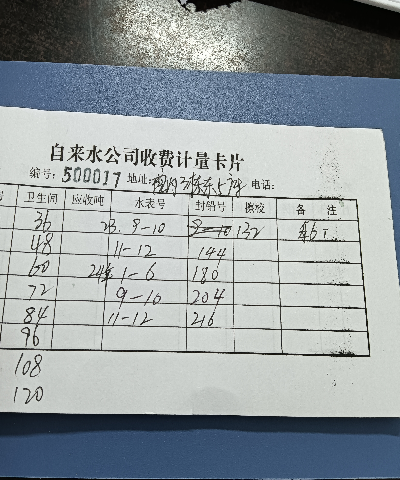 自来水公司收费计量卡片
编号: 500017 地址: 三栋东5户 电话:
号 卫生间 应收吨 水表号 封铅号 擦校 备注
36 23. 9-10 9-10 132 46T
48 11-12 144
60 24年 1-6 180
72 9-10 204
84 11-12 216
96
108
120